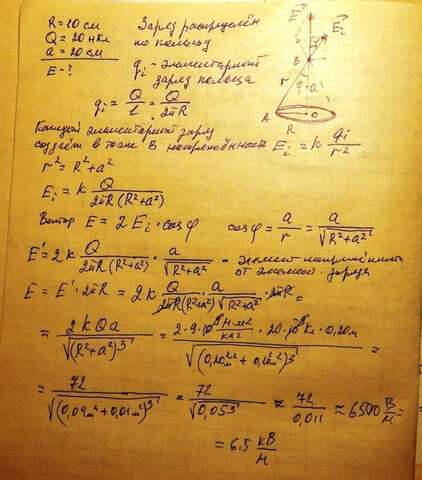 R = 10 см
Q = 20 нКл
a = 20 см
E - ?
Заряд распределён
по кольцу
qi - элементарный
заряд кольца
E⃗
E⃗i
B
φ
r
a
A
R
O
qi = Q/L = Q/2πR
Каждый элементарный заряд
создаёт в точке B напряжённость Ei = k qi/r²
r² = R² + a²
Ei = k Q/2πR(R²+a²)
Вектор E = 2Ei · cos φ   cos φ = a/r = a/√(R²+a²)
E' = 2k Q/2πR(R²+a²) · a/√(R²+a²) - элемент напряжённости
от элемент. заряда
E = E' · 2πR = 2k Q/2πR(R²+a²) · a/√(R²+a²) · 2πR =
= 2kQa/√(R²+a²)³ = 2·9·10⁹ Н·м²/Кл² · 20·10⁻⁹ Кл · 0,20м/√(0,20²м² + 0,10²м²)³ =
= 72/√(0,04м² + 0,01м²)³ = 72/√0,05³ ≈ 72/0,011 ≈ 6500 В/м =
= 6,5 кВ/м